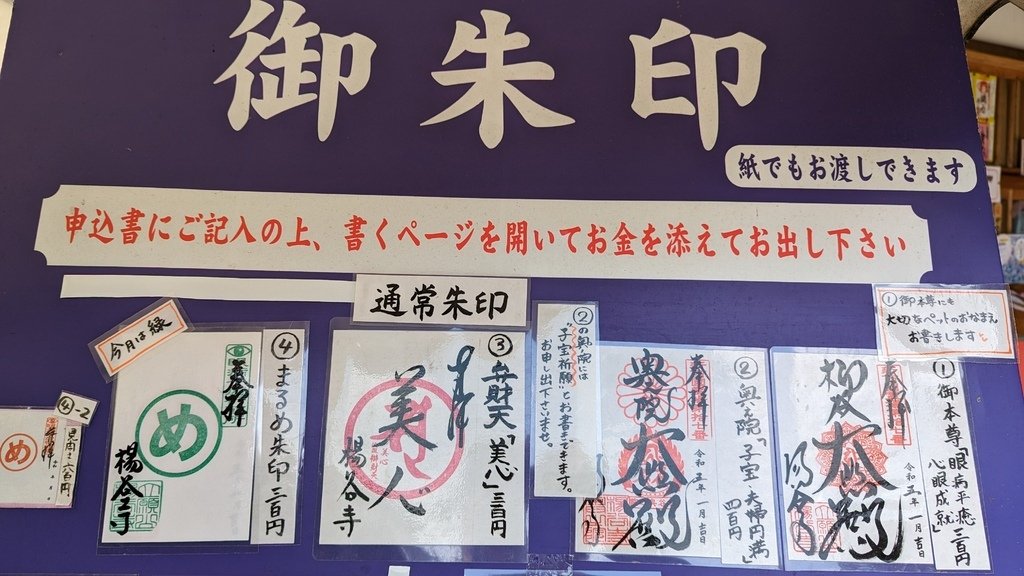 御朱印
紙でもお渡しできます
申込書にご記入の上、書くページを開いてお金を添えてお出し下さい
通常朱印
①御本尊にも
大切なペットのおなまえ
お書きします
①御本尊「眼病平癒
心眼成就」三百円
奉拝
大悲殿
令和五年一月吉日
楊谷寺
②奥の院「子宝・夫婦円満」
四百円
奉拝
奥院
大悲殿
令和五年一月吉日
②の奥の院には
"子宝祈願"とお書きできます。
お申し出下さいませ。
③弁財天「美心」三百円
奉拝
美人
楊谷寺
④まるめ朱印三百円
今月は緑
奉拝
め
楊谷寺
④-2
め